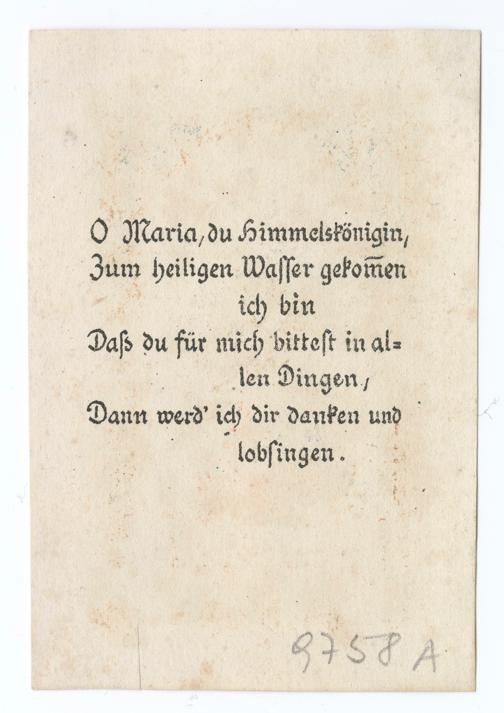 O Maria, du Himmelskönigin,
Zum heiligen Waſſer gekom̅en
ich bin
Daß du für mich bitteſt in al=
len Dingen,
Dann werd' ich dir danken und
lobſingen.
9758 A